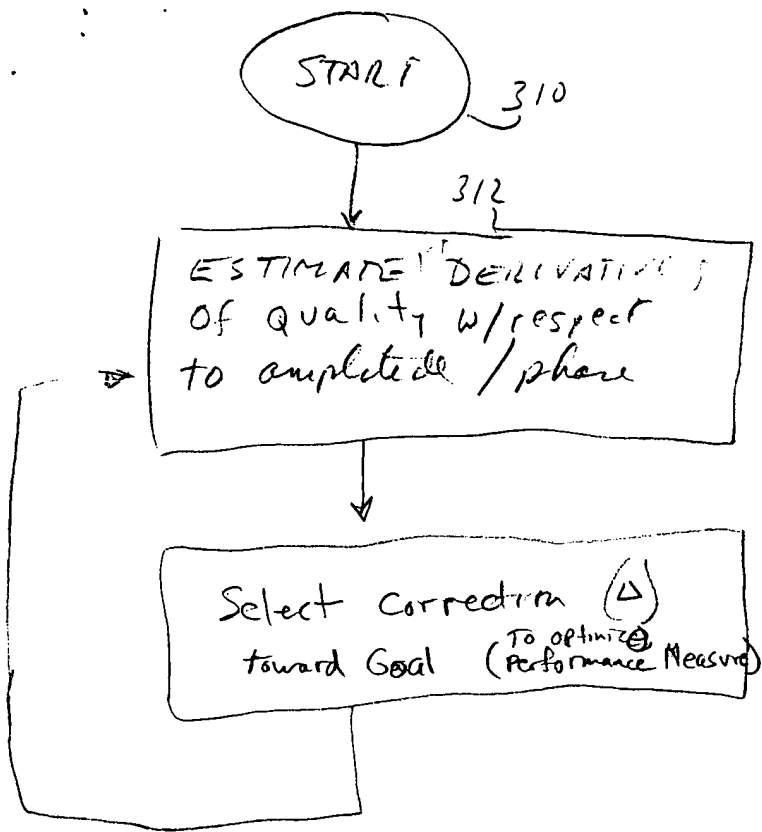 START
310
312
ESTIMATE "DERIVATIVE"
Of Quality w/respect
to amplitude / phase
Select Correction (Δ)
toward Goal (To optimize
Performance Measure)